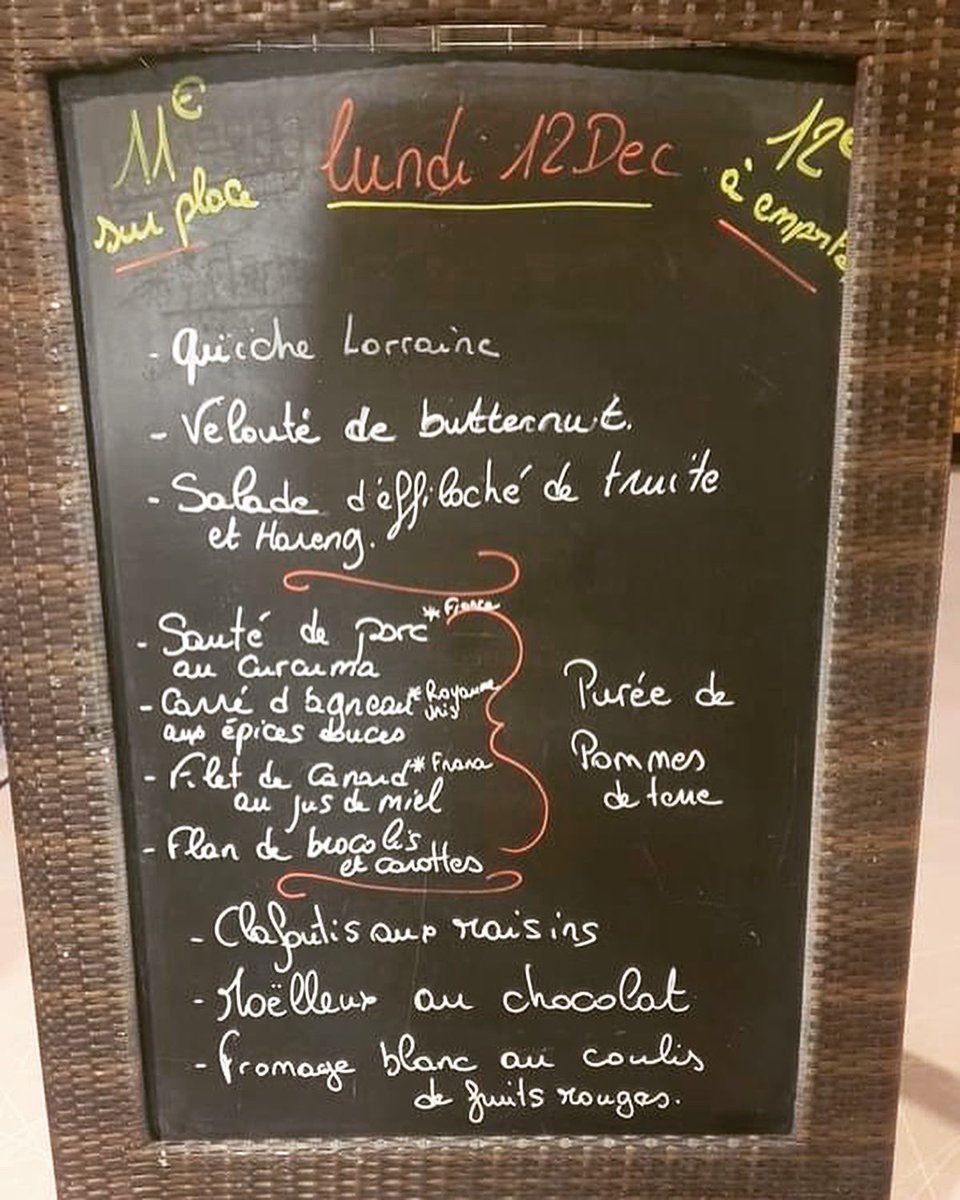 11€
sur place
lundi 12 Dec
12€
à emporter
- Quiche Lorraine
- Velouté de butternut.
- Salade d'éffiloché de truite
et Hareng.
- Sauté de porc *France
au Curcuma
- Carré d'agneau *Royaume
unis
aux épices douces
- Filet de Canard *France
au jus de miel
- Flan de brocolis
et carottes
Purée de
Pommes
de terre
- Clafoutis aux raisins
- Moëlleux au chocolat
- Fromage blanc au coulis
de fruits rouges.